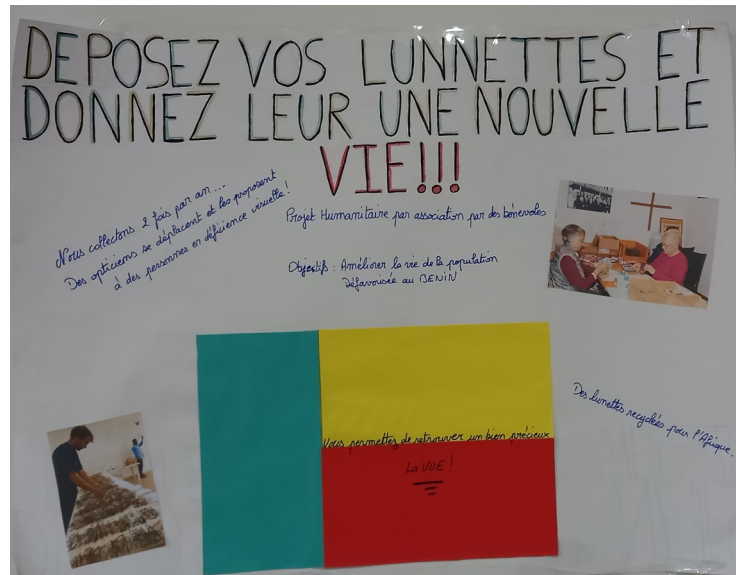 DEPOSEZ VOS LUNNETTES ET
DONNEZ LEUR UNE NOUVELLE
VIE!!!
Nous collectons 2 fois par an...
Des opticiens se déplacent et les proposent
à des personnes en déficience visuelle !
Projet Humanitaire par association par des bénévoles
Objectifs : Améliorer la vie de la population
Défavorisée au BENIN
Des lunettes recyclées pour l'Afrique.
Vous permettez de retrouver un bien précieux
La VUE !